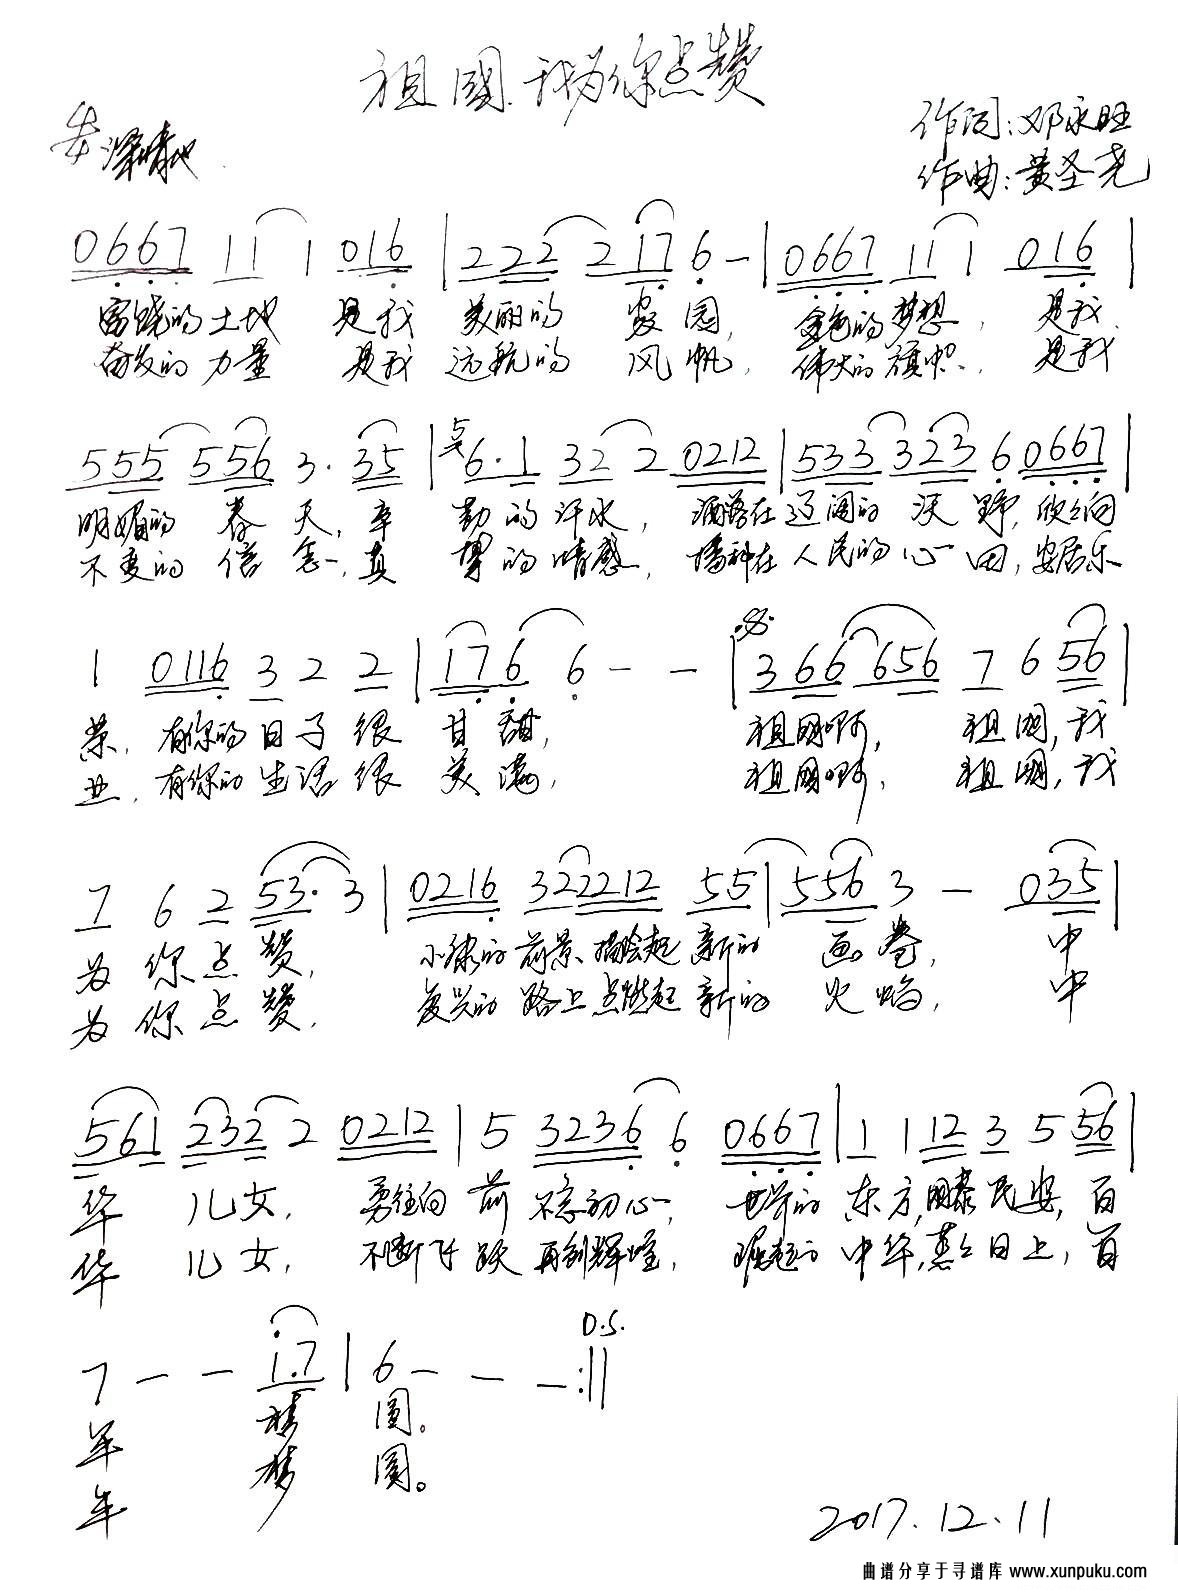 祖國,我为你点赞
深情地
作词:邓永旺
作曲:黄圣尧
0667 11 1 016 | 222 2 17 6 - | 0667 11 1 016 |
富饶的土地 是我 美丽的 家园, 金色的梦想, 是我
奋发的力量 是我 远航的 风帆, 伟大的旗帜, 是我
555 556 3· 35 | 6·1 32 2 0212 | 533 323 6 0667 |
明媚的 春天, 辛 勤的汗水, 洒落在辽阔的 沃野, 欣欣向
不变的 信念, 真 挚的情感, 播种在人民的心田, 安居乐
1 0116 3 2 2 | 17 6 6 - - | 366 656 7 6 56 |
荣, 有你的日子很 甘甜, 祖国啊, 祖国, 我
业, 有你的生活很 美满, 祖国啊, 祖國, 我
7 6 2 53· 3 | 0216 322212 55 | 556 3 - 035 |
为你点赞, 小康的前景描绘起新的 画卷, 中
为你点赞, 复兴的路上点燃起新的 火焰, 中
561 232 2 0212 | 5 3236 6 0667 | 1 1 12 3 5 56 |
华 儿女, 勇往向前 不忘初心, 世界的东方, 国泰民安, 百
华 儿女, 不断飞跃 再创辉煌, 崛起的中华, 蒸蒸日上, 百
D.S.
7 - - 1·7 | 6 - - - :||
年 梦 圆。
年 梦 圆。
2017.12.11
曲谱分享于寻谱库 www.xunpuku.com